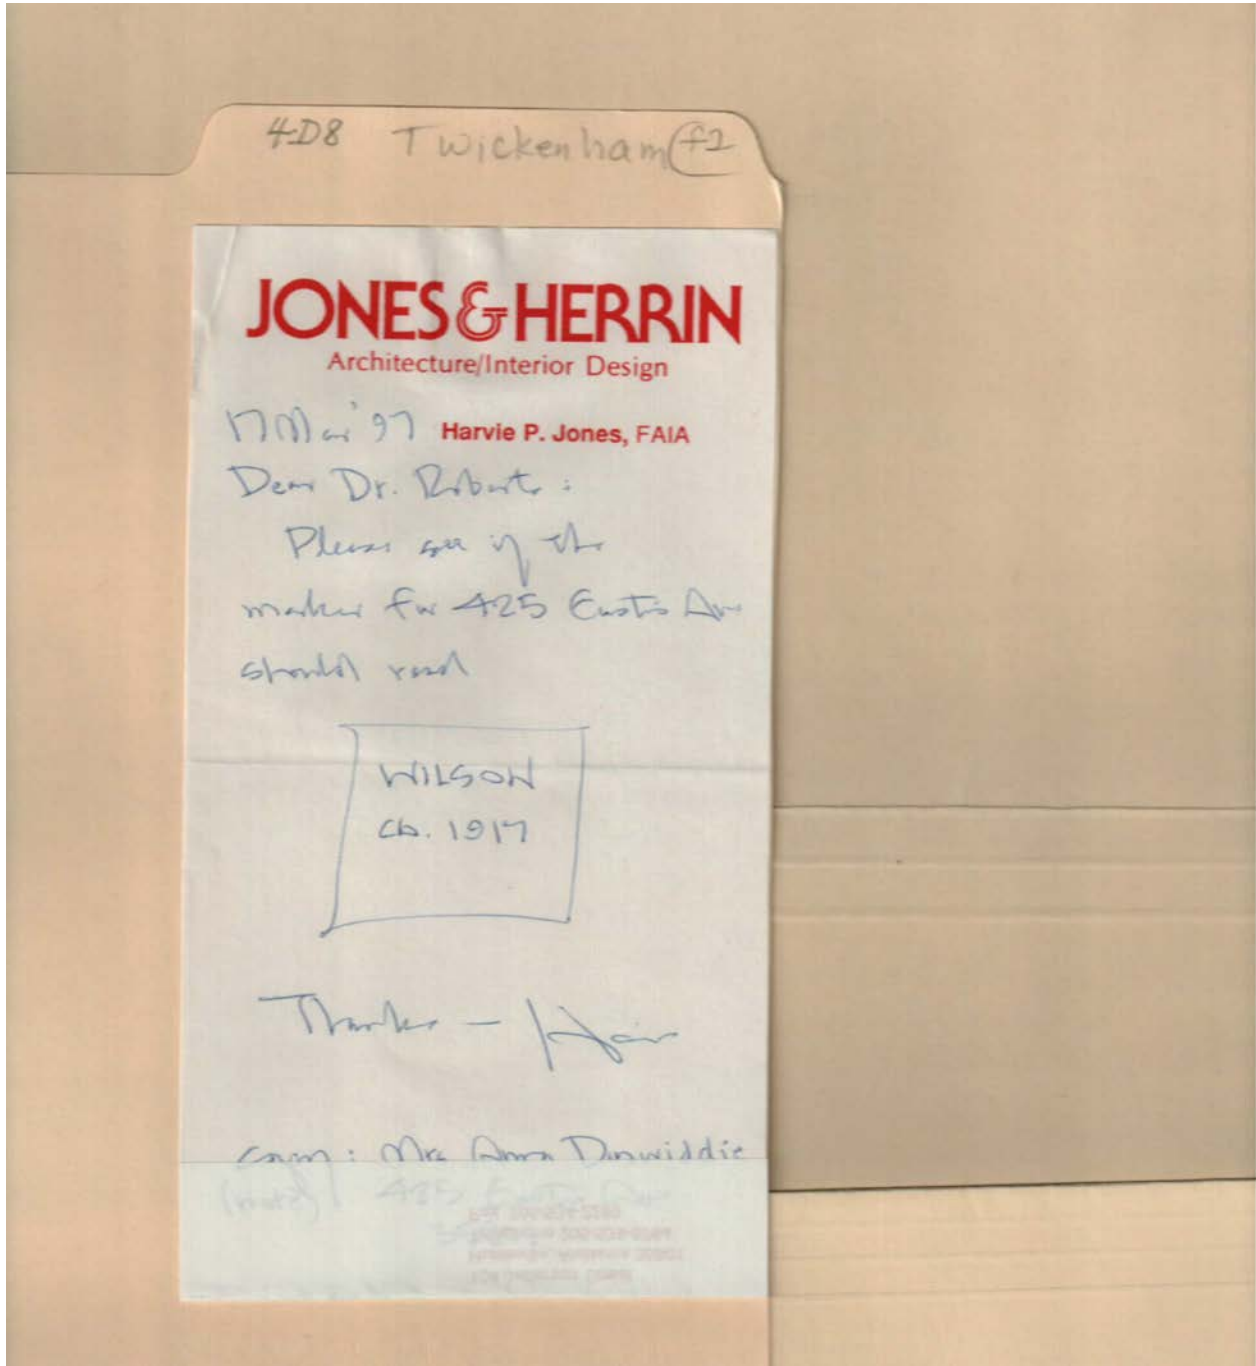 4-D8 Twickenham f2
JONES & HERRIN
Architecture/Interior Design
17 Mar '97 Harvie P. Jones, FAIA
Dear Dr. Roberts:
Please see if the
marker for 425 Eustis Av
should read
WILSON
Ca. 1917
Thanks —
copy: Mrs Anna Dinwiddie
425 Eustis Av